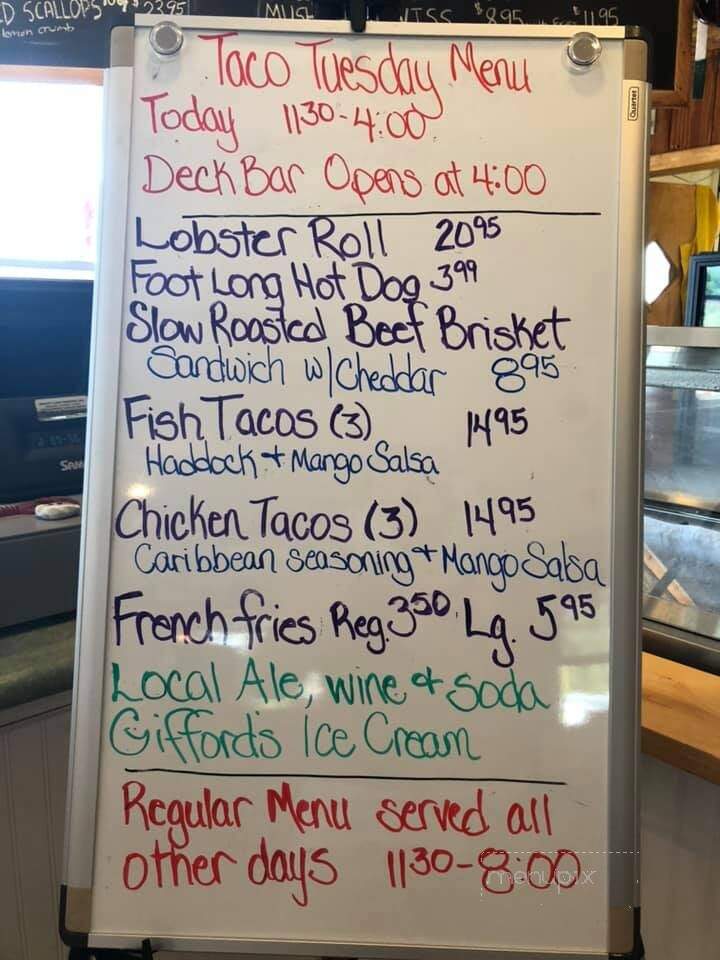 D SCALLOPS
2395
lemon crumb
$895
$1195
Taco Tuesday Menu
Today 11 30 - 4:00
Deck Bar Opens at 4:00
Quartet
Lobster Roll 20 95
Foot Long Hot Dog 3 99
Slow Roasted Beef Brisket
Sandwich w/Cheddar 8 95
Fish Tacos (3) 14 95
Haddock + Mango Salsa
Chicken Tacos (3) 14 95
Caribbean seasoning + Mango Salsa
French fries Reg. 3 50 Lg. 5 95
Local Ale, wine & Soda
Giffords Ice Cream
Regular Menu served all
other days 11 30 - 8:00
menupix